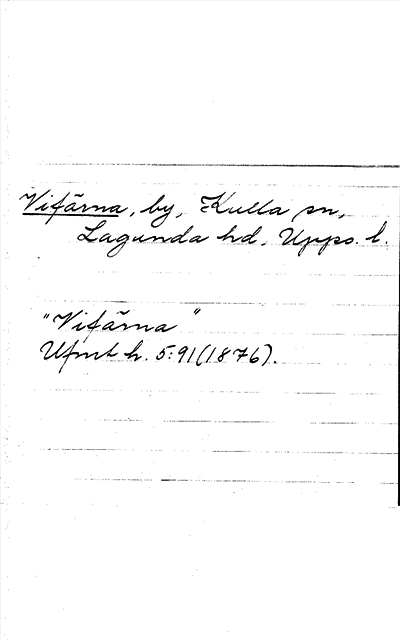 Vifärna, by, Kulla sn,
Lagunda hd, Upps. l.
"Vifärna"
Ufmt h. 5:91(1876).